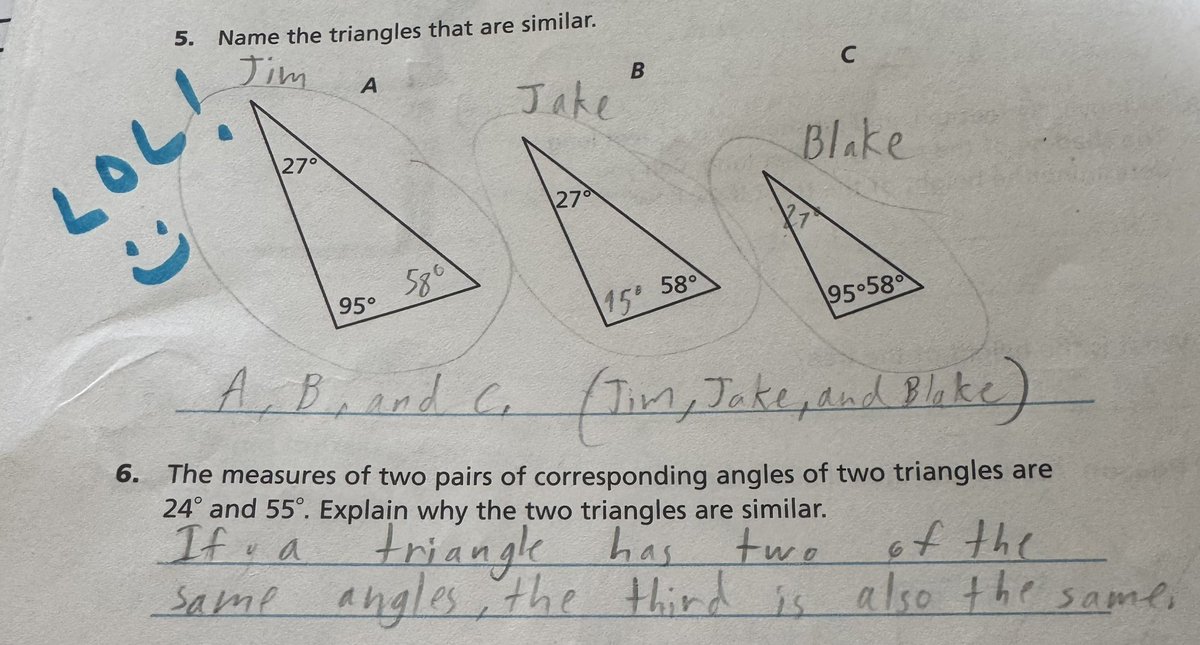 5. Name the triangles that are similar.
Jim A
Jake B
Blake C
LOL! :)
27°
95° 58°
27°
15° 58°
27°
95° 58°
A, B, and C. (Jim, Jake, and Blake)
6. The measures of two pairs of corresponding angles of two triangles are
24° and 55°. Explain why the two triangles are similar.
If a triangle has two of the
same angles, the third is also the same.